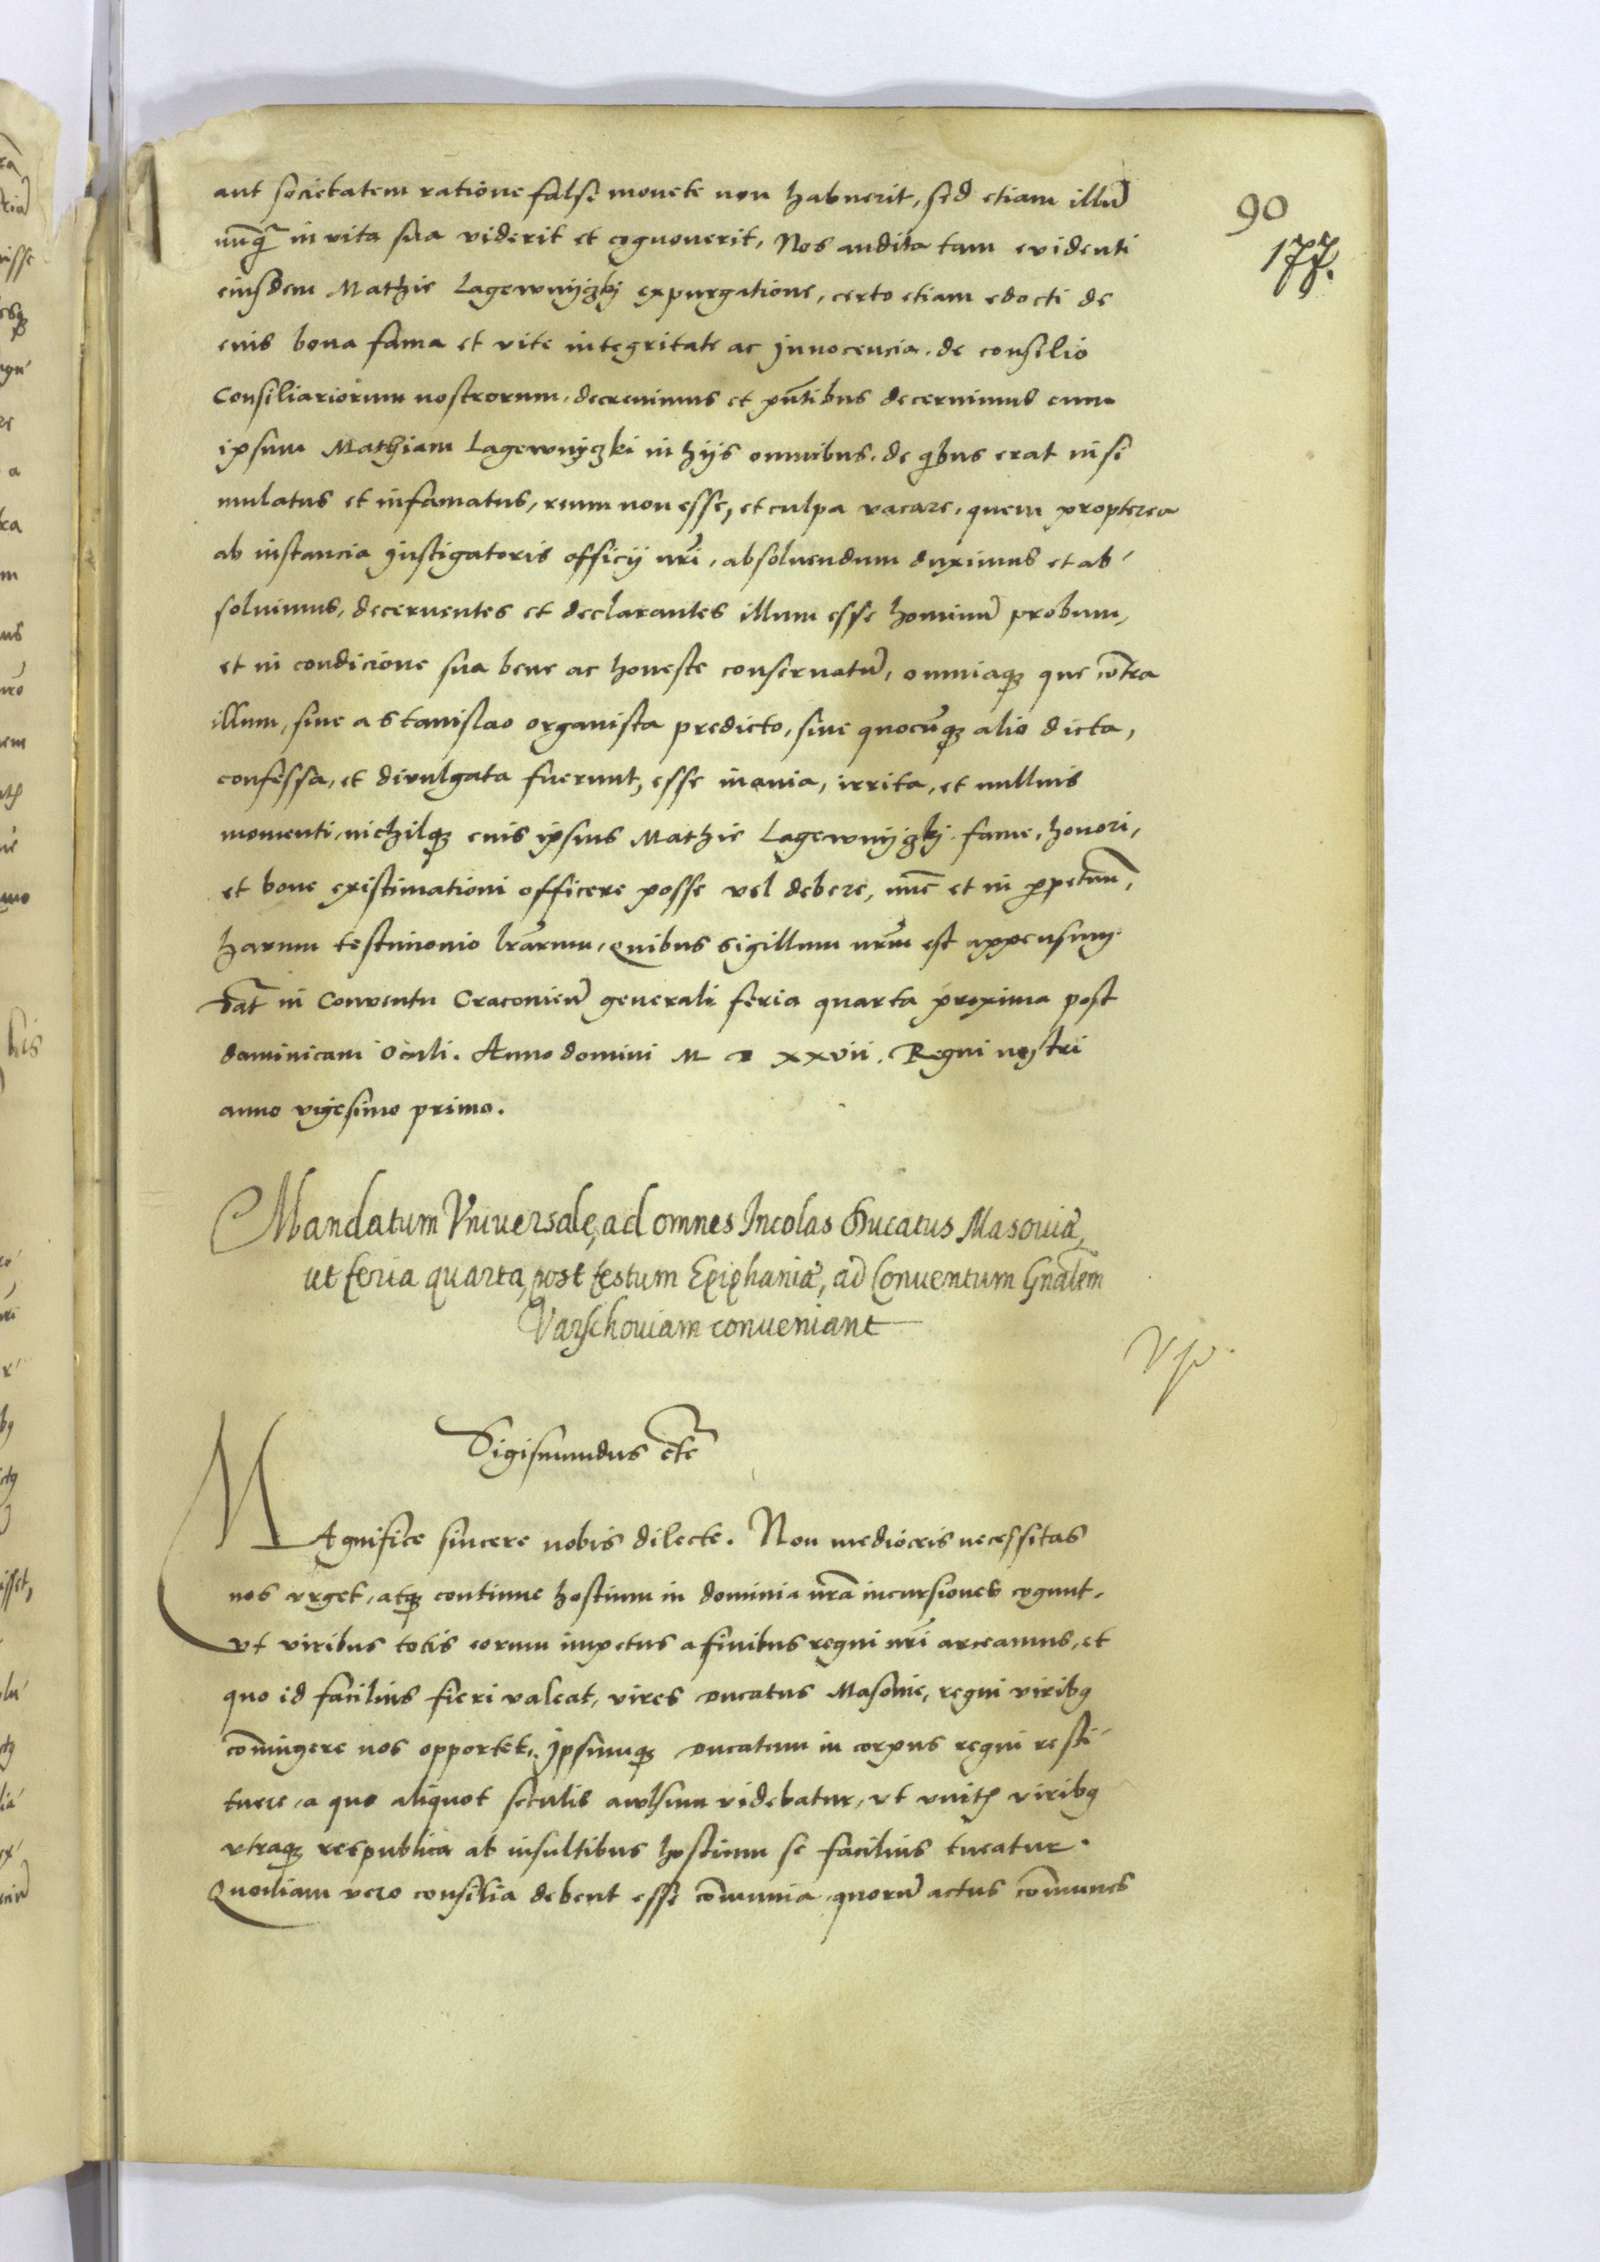 90
177.
aut societatem ratione false monete non habuerit, sed etiam illũ
nunq̃ in vita sua viderit et cognoverit, Nos audita tam evidenti
eiusdem Mathie Lagewnyczkj expurgatione, certo etiam edocti de
eius bona fama et vite integritate ac Innocencia, de consilio
Consiliariorum nostrorum, decrevimus et pñtibus decernimus eum
ipsum Mathiam Lagewnyczki in hijs omnibus, de qibus erat insi
mulatus et infamatus, reum non esse, et culpa vacare, quem propterea
ab instancia Instigatoris officij nr̃i, absoluendum duximus et ab-
soluimus, decernentes et declarantes illum esse hominẽ probum,
et in condicione sua bene ac honeste conseruatũ, omniaqꝫ que cõtra
illum, siue a Stanislao organista predicto, siue quocũqꝫ alio dicta,
confessa, et divulgata fuerunt, esse inania, irrita, et nullius
momenti, nichilqꝫ eius ipsius Mathie Lagewnyczkj fame, honori,
et bone existimationi officere posse vel debere, nũc et in ꝑpetuum,
harum testimonio lr̃arum, Quibus sigillum nr̃um est appensum.
Dat̃ in Conventu Cracovieñ generali feria quarta proxima post
dominicam Oculi. Anno domini M D xxvii. Regni nostri
anno vigesimo primo.
Mandatum Vniversale, ad omnes Incolas Ducatus Masouiæ,
ut feria quarta, post festum Epiphaniæ, ad Conuentum Gñalem
Varschouiam conueniant
Sigismundus etc̃
MAgnifice sincere nobis dilecte. Non mediocris necessitas
nos vrget, atqꝫ continue hostium in dominia nr̃a incursiones cogunt,
vt viribus totis eorum impetus a finibus regni nr̃i arceamus, et
quo id facilius fieri valeat, vires Ducatus Masovie, regni viribꝯ
cõiungere nos opportet, Ipsumqꝫ Ducatum in corpus regni resti-
tuere, a quo aliquot seculis avulsum videbatur, vt vnitꝭ viribꝯ
vtraqꝫ respublica ab insultibus hostium se facilius tueatur.
Quoniam vero consilia debent esse cõmunia, quorũ actus cõmunes